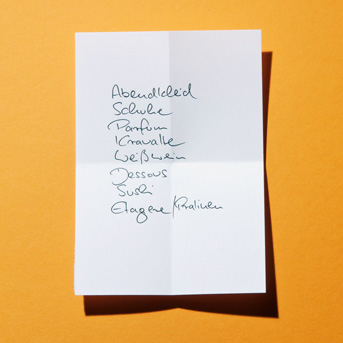 Abendkleid
Schuhe
Parfum
Krawatte
Weißwein
Dessous
Sushi
Etagere/Pralinen